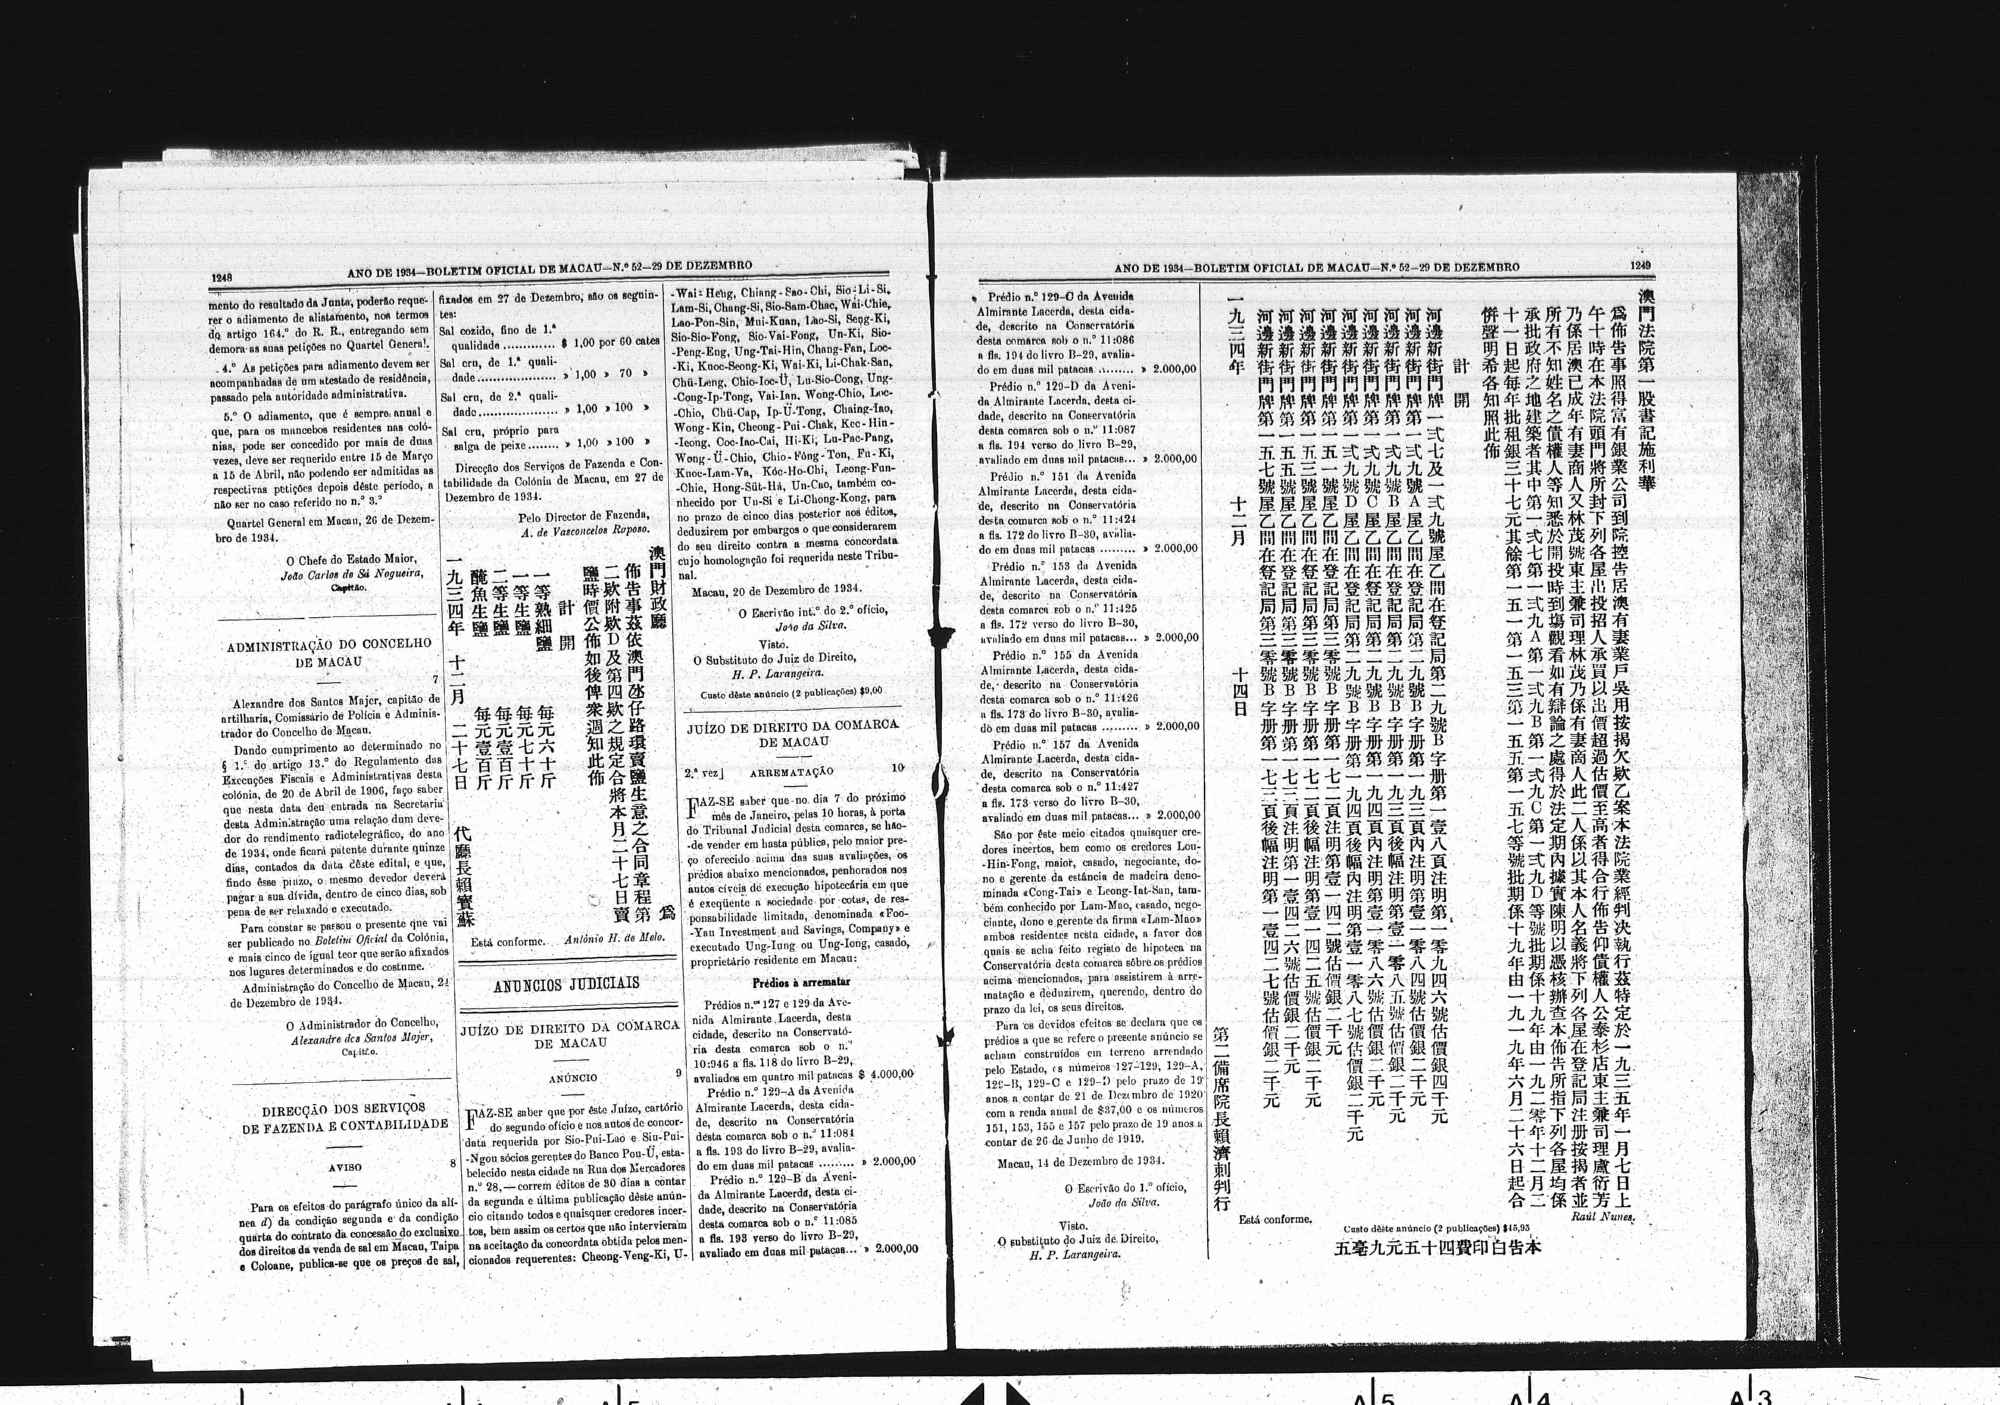 1248
ANO DE 1934—BOLETIM OFICIAL DE MACAU—N.º 52—29 DE DEZEMBRO
mento do resultado da Junta, poderão reque-
rer o adiamento de alistamento, nos termos
do artigo 164.º do R. R., entregando sem
demora as suas petições no Quartel General.
4.º As petições para adiamento devem ser
acompanhadas de um atestado de residência,
passado pela autoridade administrativa.
5.º O adiamento, que é sempre anual e
que, para os mancebos residentes nas coló-
nias, pode ser concedido por mais de duas
vezes, deve ser requerido entre 15 de Março
a 15 de Abril, não podendo ser admitidas as
respectivas petições depois dêste período, a
não ser no caso referido no n.º 3.º
Quartel General em Macau, 26 de Dezem-
bro de 1934.
O Chefe do Estado Maior,
João Carlos de Sá Nogueira,
Capitão.
ADMINISTRAÇÃO DO CONCELHO
DE MACAU
7
Alexandre dos Santos Majer, capitão de
artilharia, Comissário de Polícia e Adminis-
trador do Concelho de Macau.
Dando cumprimento ao determinado no
§ 1.º do artigo 13.º do Regulamento das
Execuções Fiscais e Administrativas desta
colónia, de 20 de Abril de 1906, faço saber
que nesta data deu entrada na Secretaria
desta Administração uma relação dum deve-
dor do rendimento radiotelegráfico, do ano
de 1934, onde ficará patente durante quinze
dias, contados da data dêste edital, e que,
findo êsse prazo, o mesmo devedor deverá
pagar a sua dívida, dentro de cinco dias, sob
pena de ser relaxado e executado.
Para constar se passou o presente que vai
ser publicado no Boletim Oficial da Colónia,
e mais cinco de igual teor que serão afixados
nos lugares determinados e do costume.
Administração do Concelho de Macau, 24
de Dezembro de 1934.
O Administrador do Concelho,
Alexandre dos Santos Majer,
Capitão.
DIRECÇÃO DOS SERVIÇOS
DE FAZENDA E CONTABILIDADE
AVISO
8
Para os efeitos do parágrafo único da alí-
nea d) da condição segunda e da condição
quarta do contrato da concessão do exclusivo
dos direitos da venda de sal em Macau, Taipa
e Coloane, publica-se que os preços de sal,
fixados em 27 de Dezembro, são os seguin-
tes:
Sal cozido, fino de 1.ª
qualidade ............ $ 1,00 por 60 cates
Sal cru, de 1.ª quali-
dade................... » 1,00 » 70 »
Sal cru, de 2.ª quali-
dade................... » 1,00 » 100 »
Sal cru, próprio para
salga de peixe........ » 1,00 » 100 »
Direcção dos Serviços de Fazenda e Con-
tabilidade da Colónia de Macau, em 27 de
Dezembro de 1934.
Pelo Director de Fazenda,
A. de Vasconcelos Raposo.
澳門財政廳 為
佈告事茲依澳門氹仔路環賣鹽生意之合同章程第
二欵附欵D及第四欵之規定合將本月二十七日賣
鹽時價公佈如後俾衆週知此佈
計開
一等熟細鹽 每元六十斤
一等生鹽 每元七十斤
二等生鹽 每元壹百斤
醃魚生鹽 每元壹百斤
一九三四年 十二月 二十七日 代廳長賴寶蘇
Está conforme. António H. de Melo.
ANÚNCIOS JUDICIAIS
JUÍZO DE DIREITO DA COMARCA
DE MACAU
ANÚNCIO
9
FAZ-SE saber que por êste Juízo, cartório
do segundo ofício e nos autos de concor-
data requerida por Sio-Pui-Lao e Siu-Pui-
-Ngou sócios gerentes do Banco Pou-Ü, esta-
belecido nesta cidade na Rua dos Mercadores
n.º 28,—correm éditos de 30 dias a contar
da segunda e última publicação dêste anún-
cio citando todos e quaisquer credores incer-
tos, bem assim os certos que não intervieram
na aceitação da concordata obtida pelos men-
cionados requerentes: Cheong-Veng-Ki, U-
-Wai-Heng, Chiang-Sao-Chi, Sio-Li-Si,
Lam-Si, Chang-Si, Sio-Sam-Chac, Wai-Chie,
Lao-Pon-Sin, Mui-Kuan, Lao-Si, Seng-Ki,
Sio-Sio-Fong, Sio-Vai-Fong, Un-Ki, Sio-
-Peng-Eng, Ung-Tai-Hin, Chang-Fan, Loc-
-Ki, Knoc-Seong-Ki, Wai-Ki, Li-Chak-San,
Chü-Leng, Chio-Ioc-Ü, Lu-Sio-Cong, Ung-
-Cong-Ip-Tong, Vai-Ian, Wong-Chio, Loc-
-Chio, Chü-Cap, Ip-Ü-Tong, Chaing-Iao,
Wong-Kin, Cheong-Pui-Chak, Kec-Hin-
-Ieong, Coc-Iao-Cai, Hi-Ki, Lu-Pac-Pang,
Wong-Ü-Chio, Chio-Fông-Ton, Fu-Ki,
Knoc-Lam-Va, Kóc-Ho-Chi, Leong-Fun-
-Chie, Hong-Süt-Há, Un-Cao, também co-
nhecido por Un-Si e Li-Chong-Kong, para
no prazo de cinco dias posterior aos éditos,
deduzirem por embargos o que considerarem
do seu direito contra a mesma concordata
cujo homologação foi requerida neste Tribu-
nal.
Macau, 20 de Dezembro de 1934.
O Escrivão int.º do 2.º ofício,
João da Silva.
Visto.
O Substituto do Juiz de Direito,
H. P. Larangeira.
Custo dêste anúncio (2 publicações) $9,00
JUÍZO DE DIREITO DA COMARCA
DE MACAU
2.ª vez] ARREMATAÇÃO 10
FAZ-SE saber que no dia 7 do próximo
mês de Janeiro, pelas 10 horas, à porta
do Tribunal Judicial desta comarca, se hão-
-de vender em hasta pública, pelo maior pre-
ço oferecido acima das suas avaliações, os
prédios abaixo mencionados, penhorados nos
autos cíveis de execução hipotecária em que
é exeqüente a sociedade por cotas, de res-
ponsabilidade limitada, denominada «Foo-
-Yau Investment and Savings, Company» e
executado Ung-Iung ou Ung-Iong, casado,
proprietário residente em Macau:
Prédios à arrematar
Prédios n.ºs 127 e 129 da Ave-
nida Almirante Lacerda, desta
cidade, descrito na Conservató-
ria desta comarca sob o n.º
10:946 a fls. 118 do livro B-29,
avaliados em quatro mil patacas $ 4.000,00
Prédio n.º 129-A da Avenida
Almirante Lacerda, desta cida-
de, descrito na Conservatória
desta comarca sob o n.º 11:084
a fls. 193 do livro B-29, avalia-
do em duas mil patacas ......... » 2.000,00
Prédio n.º 129-B da Aveni-
da Almirante Lacerda, desta ci-
dade, descrito na Conservatória
desta comarca sob o n.º 11:085
a fls. 193 verso do livro B-29,
avaliado em duas mil patacas... » 2.000,00
ANO DE 1934—BOLETIM OFICIAL DE MACAU—N.º 52—29 DE DEZEMBRO
1249
Prédio n.º 129-C da Avenida
Almirante Lacerda, desta cida-
de, descrito na Conservatória
desta comarca sob o n.º 11:086
a fls. 194 do livro B-29, avalia-
do em duas mil patacas ......... » 2.000,00
Prédio n.º 129-D da Aveni-
da Almirante Lacerda, desta ci-
dade, descrito na Conservatória
desta comarca sob o n.º 11:087
a fls. 194 verso do livro B-29,
avaliado em duas mil patacas... » 2.000,00
Prédio n.º 151 da Avenida
Almirante Lacerda, desta cida-
de, descrito na Conservatória
desta comarca sob o n.º 11:424
a fls. 172 do livro B-30, avalia-
do em duas mil patacas ......... » 2.000,00
Prédio n.º 153 da Avenida
Almirante Lacerda, desta cida-
de, descrito na Conservatória
desta comarca sob o n.º 11:425
a fls. 172 verso do livro B-30,
avaliado em duas mil patacas... » 2.000,00
Prédio n.º 155 da Avenida
Almirante Lacerda, desta cida-
de, descrito na Conservatória
desta comarca sob o n.º 11:426
a fls. 173 do livro B-30, avalia-
do em duas mil patacas ......... » 2.000,00
Prédio n.º 157 da Avenida
Almirante Lacerda, desta cida-
de, descrito na Conservatória
desta comarca sob o n.º 11:427
a fls. 173 verso do livro B-30,
avaliado em duas mil patacas... » 2.000,00
São por êste meio citados quaisquer cre-
dores incertos, bem como os credores Lou-
-Hin-Fong, maior, casado, negociante, do-
no e gerente da estância de madeira deno-
minada «Cong-Tai» e Leong-Iat-San, tam-
bém conhecido por Lam-Mao, casado, nego-
ciante, dono e gerente da firma «Lam-Mao»
ambos residentes nesta cidade, a favor dos
quais se acha feito registo de hipoteca na
Conservatória desta comarca sôbre os prédios
acima mencionados, para assistirem à arre-
matação e deduzirem, querendo, dentro do
prazo da lei, os seus direitos.
Para os devidos efeitos se declara que os
prédios a que se refere o presente anúncio se
acham construídos em terreno arrendado
pelo Estado, os números 127-129, 129-A,
129-B, 129-C e 129-D pelo prazo de 19
anos a contar de 21 de Dezembro de 1920
com a renda anual de $37,00 e os números
151, 153, 155 e 157 pelo prazo de 19 anos a
contar de 26 de Junho de 1919.
Macau, 14 de Dezembro de 1934.
O Escrivão do 1.º ofício,
João da Silva.
Visto.
O substituto do Juiz de Direito,
H. P. Larangeira.
澳門法院第一股書記施利華
爲佈告事照得富有銀業公司到院控告居澳有妻業戶吳用按揭欠欵乙案本法院業經判决執行茲特定於一九三五年一月七日上
午十時在本法院頭門將所封下列各屋出投招人承買以出價超過估價至高者得合行佈告仰債權人公泰杉店東主兼司理盧衍芳
乃係居澳已成年有妻商人又林茂號東主兼司理林茂乃係有妻商人此二人係以其本人名義將下列各屋在登記局注册按揭者並
所有不知姓名之債權人等知悉於開投時到塲觀看如有辯論之處得於法定期內據實陳明以憑核辦查本佈告所指下列各屋均係
承批政府之地建築者其中第一弍七第一弍九A第一弍九B第一弍九C第一弍九D等號批期係十九年由一九二零年十二月二
十一日起每年批租銀三十七元其餘第一五一第一五三第一五五第一五七等號批期係十九年由一九一九年六月二十六日起合
併聲明希各知照此佈
計開
河邊新街門牌一弍七及一弍九號屋乙間在登記局第二九號B字册第一壹八頁注明第一零九四六號估價銀四千元
河邊新街門牌第一弍九號A屋乙間在登記局第二九號B字册第一九三頁內注明第壹一零八四號估價銀二千元
河邊新街門牌第一弍九號B屋乙間在登記局第二九號B字册第一九三頁後幅注明第壹一零八五號估價銀二千元
河邊新街門牌第一弍九號C屋乙間在登記局第二九號B字册第一九四頁內注明第壹一零八六號估價銀二千元
河邊新街門牌第一弍九號D屋乙間在登記局第二九號B字册第一九四頁後幅內注明第壹一零八七號估價銀二千元
河邊新街門牌第一五一號屋乙間在登記局第三零號B字册第一七二頁注明第壹一四二號估價銀二千元
河邊新街門牌第一五三號屋乙間在登記局第三零號B字册第一七二頁後幅注明第壹一四二五號估價銀二千元
河邊新街門牌第一五五號屋乙間在登記局第三零號B字册第一七三頁注明第一壹四二六號估價銀二千元
河邊新街門牌第一五七號屋乙間在登記局第三零號B字册第一七三頁後幅注明第一壹四二七號估價銀二千元
一九三四年 十二月 十四日
第二備席院長賴濟刺判行
Está conforme.
Raúl Nunes.
Custo dêste anúncio (2 publicações) $45,95
本告白印費四十五元九毫五
A 5
A 5
A 4
A 3